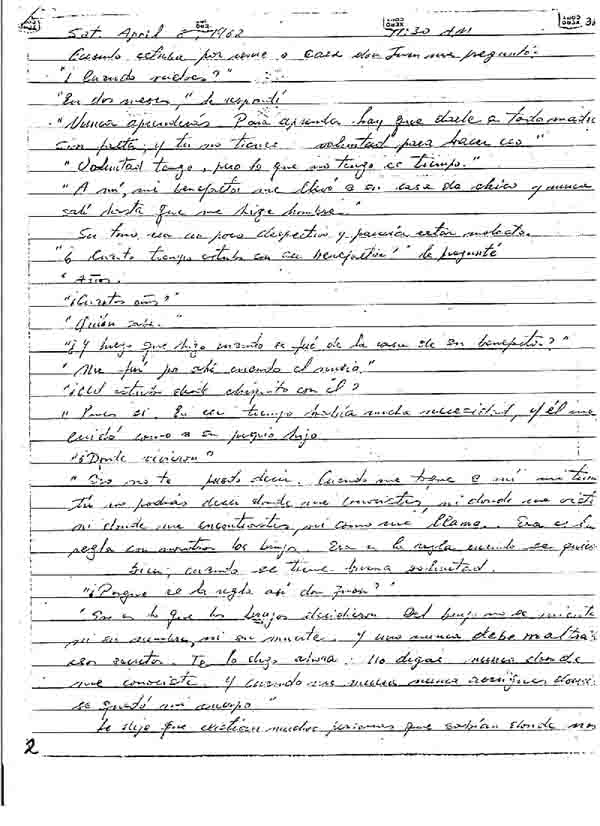 Sat. April 8, 1962 11:30 AM
Cuando estaba por irme a casa don Juan me preguntó:
"¿Cuando vuelves?"
"En dos meses," le respondí
"Nunca aprenderás. Para aprender hay que darle a todo
sin falta; y tu no tienes voluntad para hacer eso"
"Voluntad tengo, pero lo que no tengo es tiempo."
"A mí, mi benefactor me llevó a su casa de chico y nunca
salí hasta que me hize hombre."
Su tono era un poco despectivo y parecía estar molesto.
"¿Cuánto tiempo estuvo con su benefactor?" le pregunté
"Años."
"¿Cuantos años?"
"Quién sabe."
"¿Y luego que hizo cuando se fué de la casa de su benefactor?"
"Me fuí por ahí cuando el murió."
"¿Ud estuvo desde chiquito con él?
"Pues si. En ese tiempo había mucha necesidad, y él me
cuidó como a su propio hijo
"¿Donde vivieron?"
"Eso no te puedo decir. Cuando me
tu no podrás decir donde me conociste, ni donde me viste
ni donde me encontraste, ni como me llamo. Esa es la
regla con nosotros los brujos. Esa es la regla cuando se
bien, cuando se tiene buena voluntad.
"¿Porque es la regla así don Juan?"
"Eso es lo que los brujos decidieron. Del brujo no se
ni su nombre, ni su muerte. Y uno nunca debe
esos secretos. Te lo digo ahora: No digas nunca donde
me conociste. Y cuando me muera nunca donde
se quedó mi cuerpo"
Le dije que existían muchas personas que sabían donde
2